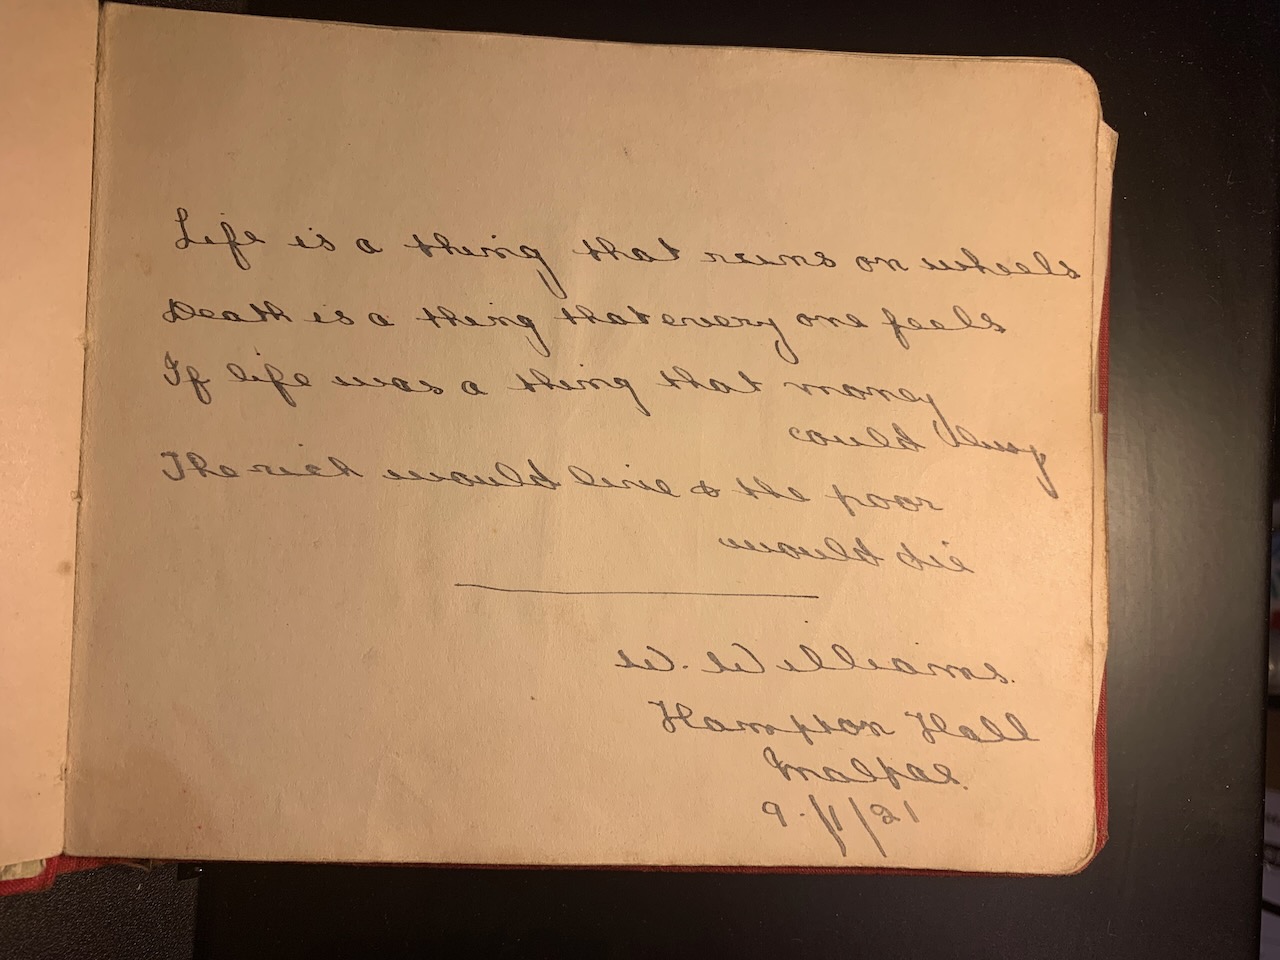 Life is a thing that runs on wheels
Death is a thing that every one feels
If life was a thing that money
could buy
The rich would live & the poor
would die
W. Williams.
Hampton Hall
Malpas.
9.1/1/21